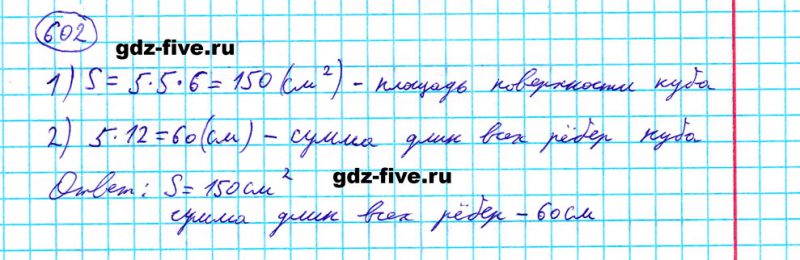 602
gdz-five.ru
1) S = 5·5·6 = 150 (см²) – площадь поверхности куба
2) 5·12 = 60 (см) – сумма длин всех рёбер куба
Ответ: S = 150 см²
gdz-five.ru
сумма длин всех рёбер – 60 см